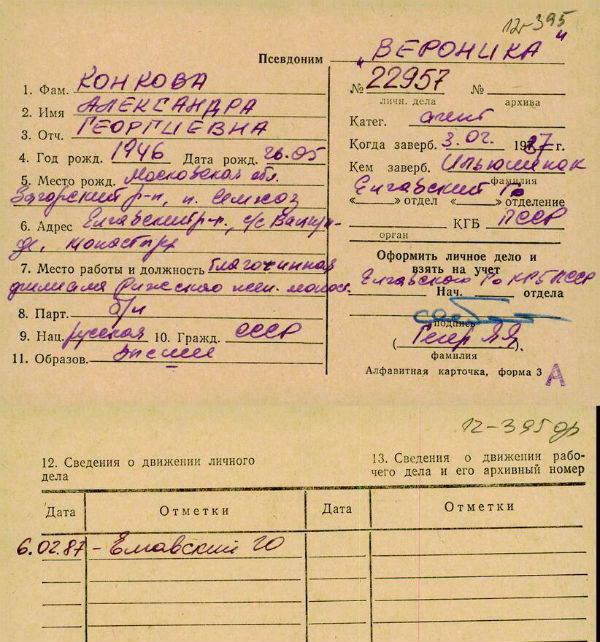 12-395
Псевдоним "ВЕРОНИКА"
1. Фам. КОНКОВА
2. Имя АЛЕКСАНДРА
3. Отч. ГЕОРГИЕВНА
4. Год рожд. 1946 Дата рожд. 26.05
5. Место рожд. Московская обл.
Загорский р-н, п. Семхоз
6. Адрес Елгавский р-н, с/с
монастырь
7. Место работы и должность
филиала Рижского жен.
8. Парт. б/п
9. Нац. русская 10. Гражд. СССР
11. Образов. высшее
№ 22957 №
личн. дела архива
Катег. агент
Когда заверб. 3.02. 1987 г.
Кем заверб.
фамилия
Елгавский ГО
«» отдел «» отделение
КГБ ЛССР
орган
Оформить личное дело и
взять на учет
Елгавского ГО КГБ ЛССР
Нач. отдела
подпись
()
фамилия
Алфавитная карточка, форма 3 А
12-395
12. Сведения о движении личного
дела
13. Сведения о движении рабо-
чего дела и его архивный номер
Дата Отметки Дата Отметки
6.02.87 - Елгавский ГО